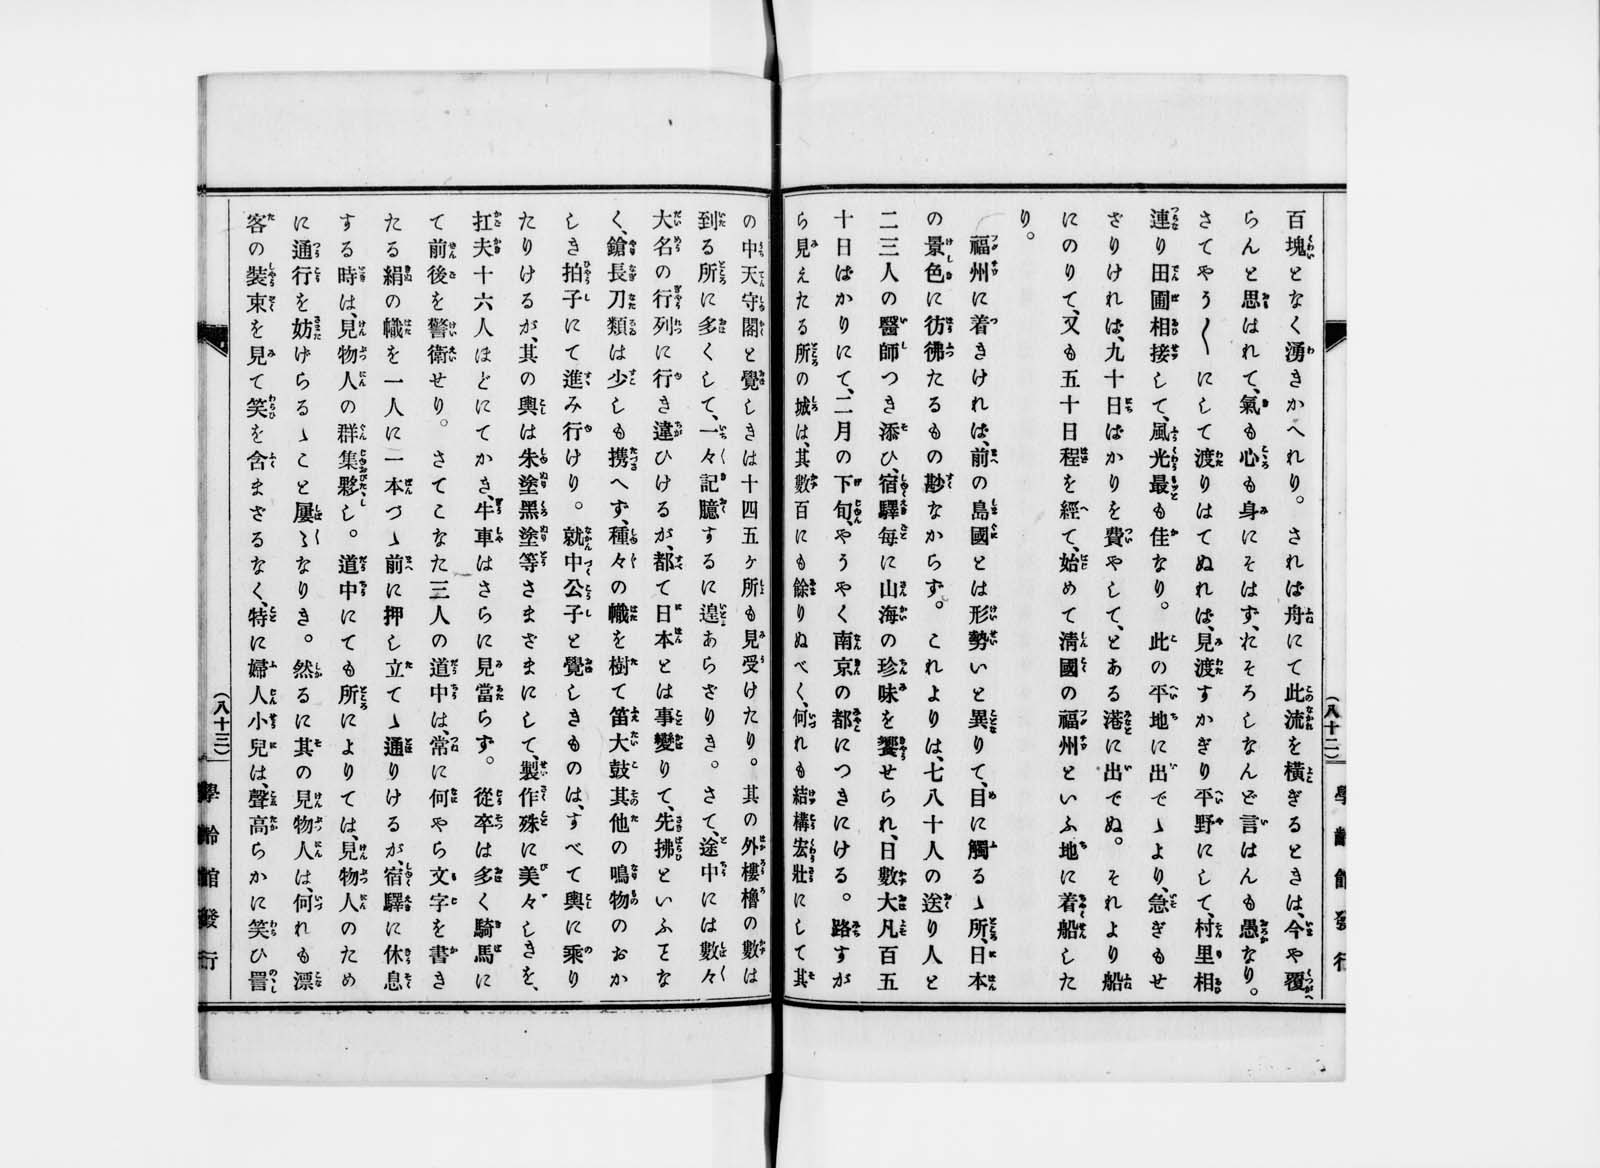 百塊となく湧きかへれり。されば舟にて此流を横ぎるときは、今や覆
らんと思はれて、氣も心も身にそはず、おそろしなんど言はんも愚なり。
さてやう〳〵にして渡りはてぬれば、見渡すかぎり平野にして、村里相
連り田圃相接して、風光最も佳なり。此の平地に出でゝより、急ぎもせ
ざりければ、九十日ばかりを費やして、とある港に出でぬ。それより船
にのりて、又も五十日程を經て、始めて淸國の福州といふ地に着船した
り。
福州に着きければ、前の島國とは形勢いと異りて、目に觸るゝ所、日本
の景色に彷彿たるもの尠なからず。これよりは、七八十人の送り人と
二三人の醫師つき添ひ、宿驛毎に山海の珍味を饗せられ、日數大凡百五
十日ばかりにて、二月の下旬、やうやく南京の都につきにける。路すが
ら見えたる所の城は、其數百にも餘りぬべく、何れも結構宏壯にして其
(八十二)
學齡館發行
の中天守閣と覺しきは十四五ヶ所も見受けたり。其の外樓櫓の數は
到る所に多くして、一々記臆するに遑あらざりき。さて、途中には數々
大名の行列に行き違ひけるが、都て日本とは事變りて、先拂といふ㕝な
く、鎗長刀類は少しも携へず、種々の幟を樹て笛大鼓其他の鳴物のおか
しき拍子にて進み行けり。就中公子と覺しきものは、すべて輿に乘り
たりけるが、其の輿は朱塗黑塗等さまざまにして、製作殊に美々しきを、
扛夫十六人ほどにてかき、牛車はさらに見當らず。從卒は多く騎馬に
て前後を警衛せり。さてこなた三人の道中は、常に何やら文字を書き
たる絹の幟を一人に一本づゝ前に押し立てゝ通りけるが、宿驛に休息
する時は、見物人の群集夥し。道中にても所によりては、見物人のため
に通行を妨げらるゝこと屢〻なりき。然るに其の見物人は、何れも漂
客の装束を見て笑を含まざるなく、特に婦人小兒は、聲高らかに笑ひ詈
(八十三)
學齡館發行